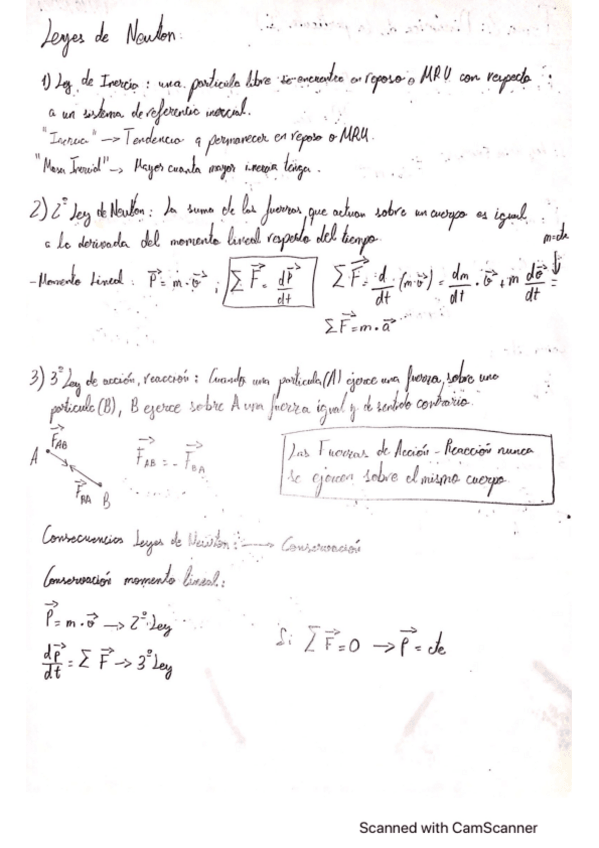 Leyes de Newton:
1) Ley de Inercia: una partícula libre se encuentra en reposo o MRU con respecto
a un sistema de referencia inercial.
"Inercia" -> Tendencia a permanecer en reposo o MRU.
"Masa Inercial" -> Mayor cuanta mayor inercia tenga.
2) 2º Ley de Newton: La suma de las fuerzas que actuan sobre un cuerpo es igual
a la derivada del momento lineal respecto del tiempo.
m=cte
- Momento Lineal: P⃗ = m·v⃗ ; ΣF⃗ = dP⃗/dt ΣF⃗ = d/dt (m·v⃗) = dm/dt · v⃗ + m dv⃗/dt =
ΣF⃗ = m·a⃗
3) 3º Ley de acción, reacción: Cuando una partícula (A) ejerce una fuerza, sobre una
partícula (B), B ejerce sobre A una fuerza igual y de sentido contrario.
F⃗AB
A
F⃗BA
B
F⃗AB = - F⃗BA
Las Fuerzas de Acción - Reacción nunca
se ejercen sobre el mismo cuerpo
Consecuencias Leyes de Newton: -> Conservación
Conservación momento lineal:
P⃗ = m·v⃗ -> 2º Ley
dP⃗/dt = ΣF⃗ -> 3º Ley
Si ΣF⃗ = 0 -> P⃗ = cte
Scanned with CamScanner